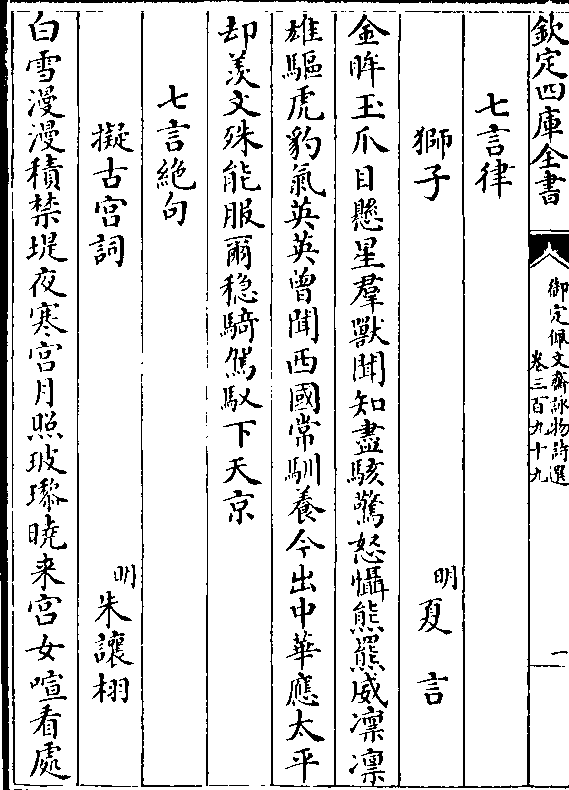 欽定四庫全書
御定佩文齋詠物詩選
卷三百九十九
一
七言律
獅子
明
夏言
金眸玉爪目懸星羣獸聞知盡駭驚怒懾熊羆威凜凜
雄驅虎豹氣英英曾聞西國常馴養今出中華應太平
却羡文殊能服爾穏騎駕馭下天京
七言絶句
擬古宫詞
明
朱讓栩
白雪漫漫積禁堤夜寒宫月照玻瓈曉来宫女喧看處